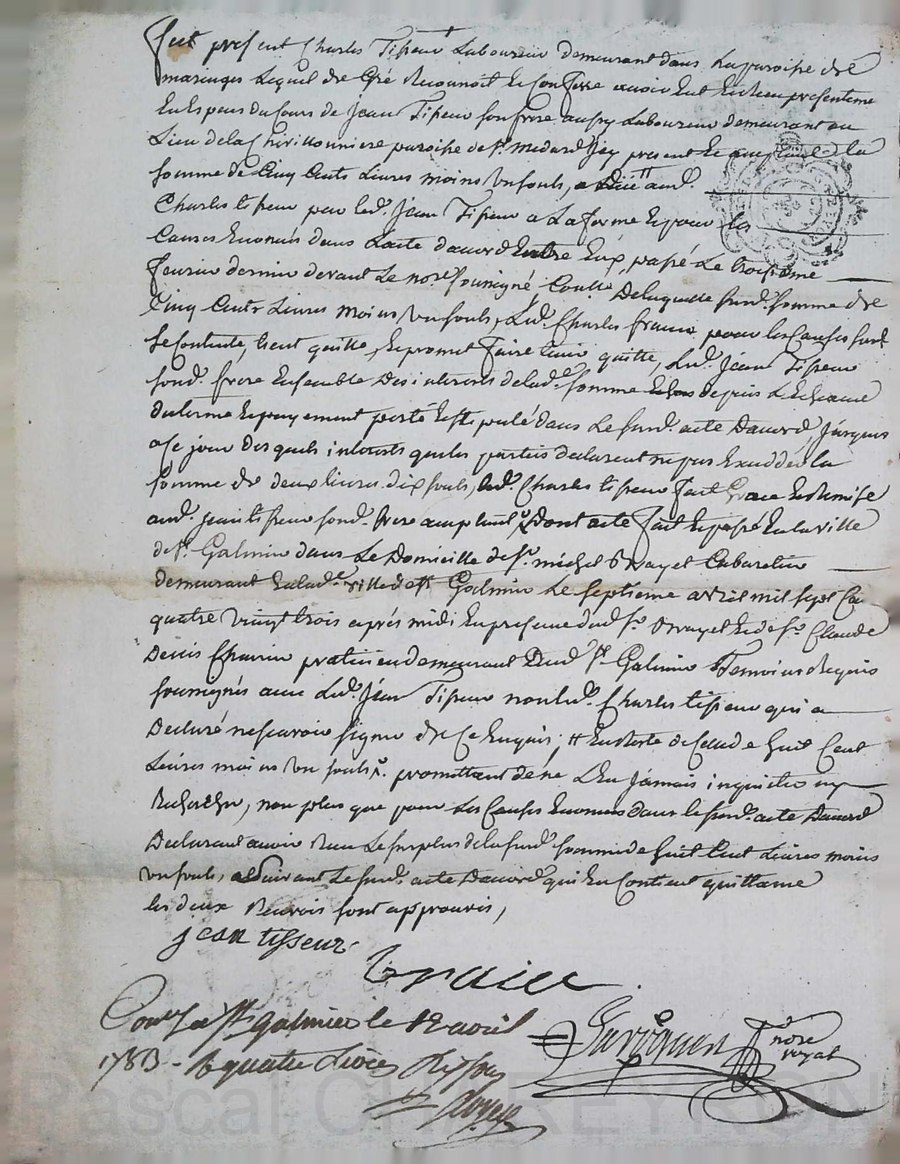 fut present Charles Tisseur Laboureur demeurant dans La paroisse de
maringes Lequel de Gré Reconnoit et Confesse avoir Eut et Receu presenteme
En Especes du Cours de Jean Tisseur son frere aussy Laboureur demeurant au
Lieu de la Chirillonniere paroisse de St. medard Icy present et acceptant la
somme de Cinq Cents Livres moins un souls, a Luie aud.
Charles tisseur par led. Jean Tisseur a La forme Et pour les
Causes Enoncés dans Lacte daccord Entre Eux, passé Le troisieme
fevrier dernier devant Le nore. soussigné, De laquelle susd. somme de
Cinq Cents Livres moins un souls, Led. Charles pour les Causes susd.
se Contente, tient quitte, Et promet faire tenir quitte, Led. Jean Tisseur
sond. frere Ensemble Des interets de lad. somme depuis L'Echeance
du terme Et payement porté Et stipulé dans Le susd. acte Daccord, Jusques
a Ce jour desquels interets que les parties declarent ne pas Exceddér la
somme de deux livres dix souls, Led. Charles tisseur fait Grace Et Remise
aud. jean tisseur sond. frere acceptant, Dont acte fait Et passé En la ville
de St. Galmier dans Le Domicille de Sr. michel Cabaretier
demeurant En lad. ville de St. Galmier Le septieme avril mil sept Ce
quatre vingt trois après midi En presence dud. Sr. Et de Sr. Claude
Denis Chavin praticien demeurant aud. St. Galmier Temoins Requis
soussignés avec Led. Jean Tisseur non led. Charles tisseur qui a
Declaré ne scavoir signer de Ce Enquis; # En Reste de Celle de huit Cent
Livres moins un souls, promettant de ne L'En Jamais inquietter ny
Rechercher, non plus que pour Les Causes Enoncés dans le susd. acte Daccord
Declarant avoir Receu Le surplus de la susd. somme de huit Cent Livres moins
un souls, Suivant Le susd. acte Daccord qui En Contient quittance
les deux Renvois sont approuvés,
jean tisseur
Con. a St. galmier le 12 avril
nore
royal
1783 - quatre Livres
Pascal CHAREYRON